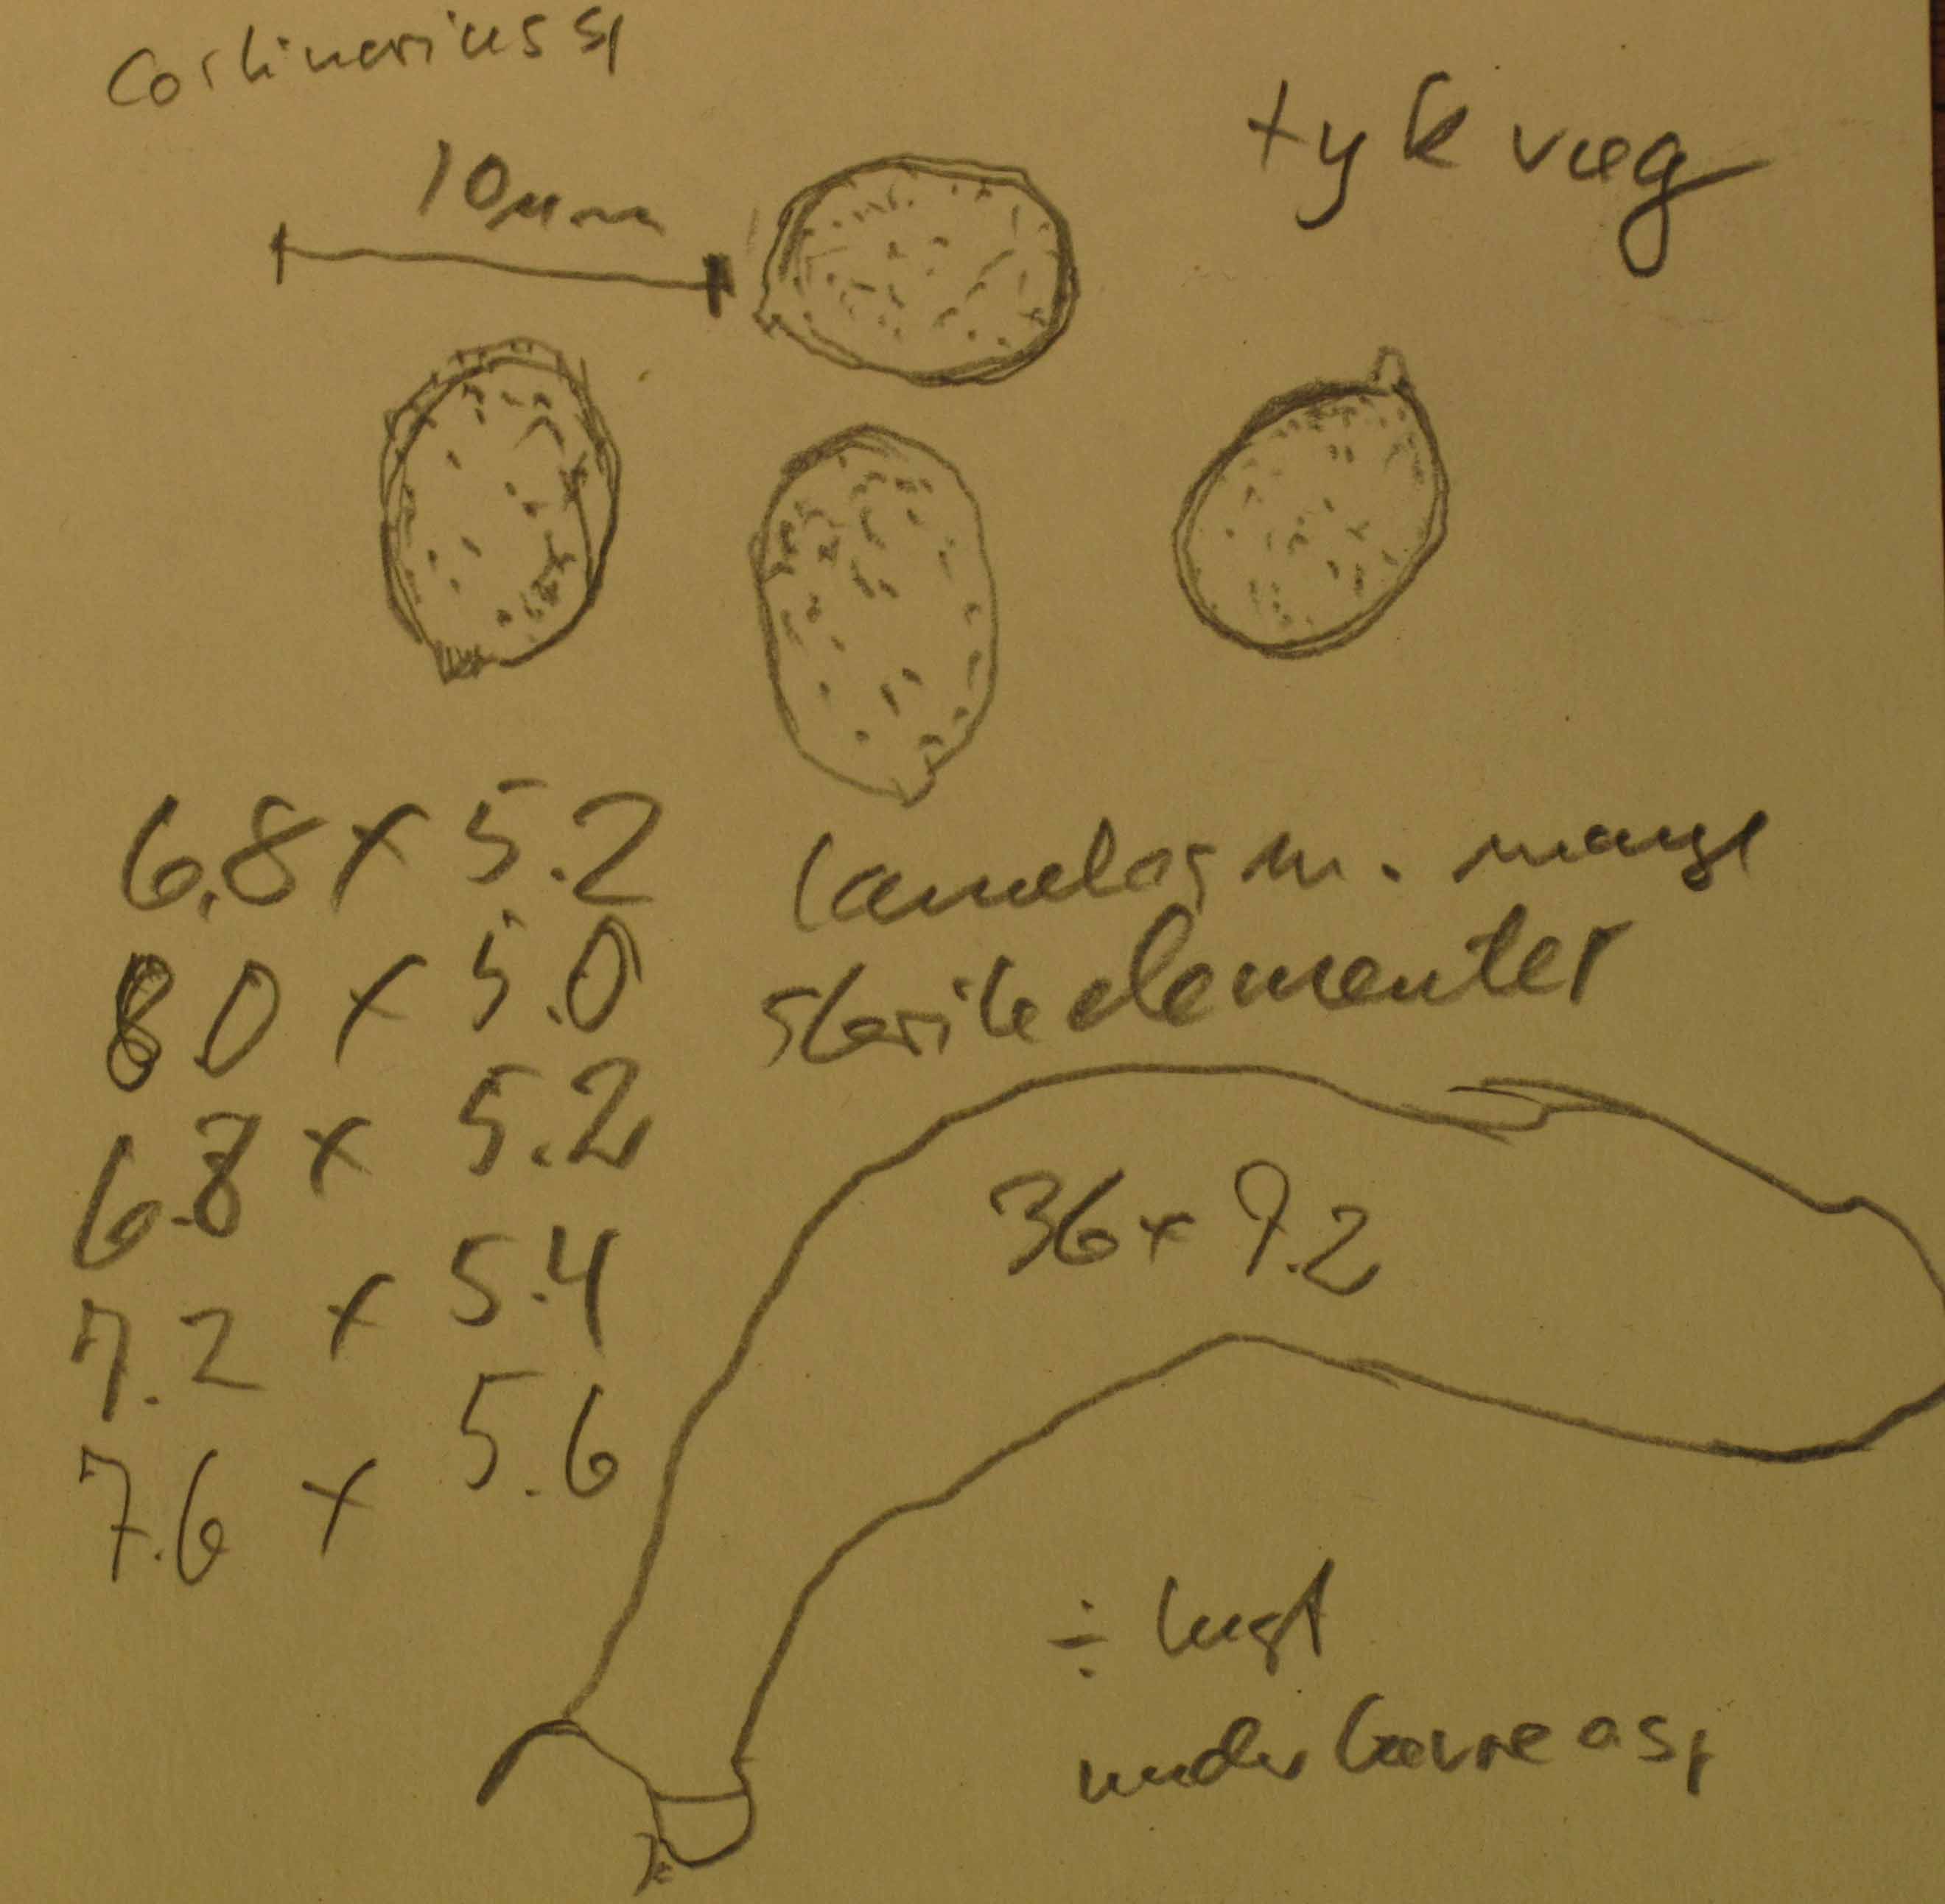 Cortinarius sp
tyk væg
10 µm
6.8 x 5.2
8.0 x 5.0
6.8 x 5.2
7.2 x 5.4
7.6 x 5.6
lamelæg m. mange
sterile elementer
36 x 9.2
÷ lugt
under bævreasp